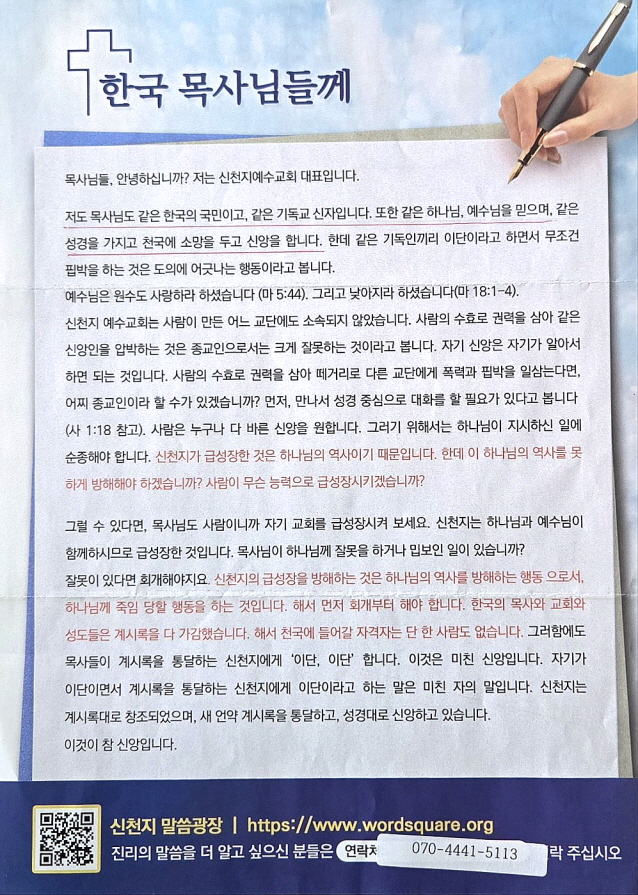 한국 목사님들께
목사님들, 안녕하십니까? 저는 신천지예수교회 대표입니다.
저도 목사님도 같은 한국의 국민이고, 같은 기독교 신자입니다. 또한 같은 하나님, 예수님을 믿으며, 같은
성경을 가지고 천국에 소망을 두고 신앙을 합니다. 한데 같은 기독인끼리 이단이라고 하면서 무조건
핍박을 하는 것은 도의에 어긋나는 행동이라고 봅니다.
예수님은 원수도 사랑하라 하셨습니다 (마 5:44). 그리고 낮아지라 하셨습니다(마 18:1-4).
신천지 예수교회는 사람이 만든 어느 교단에도 소속되지 않았습니다. 사람의 수효로 권력을 삼아 같은
신앙인을 압박하는 것은 종교인으로서는 크게 잘못하는 것이라고 봅니다. 자기 신앙은 자기가 알아서
하면 되는 것입니다. 사람의 수효로 권력을 삼아 떼거리로 다른 교단에게 폭력과 핍박을 일삼는다면,
어찌 종교인이라 할 수가 있겠습니까? 먼저, 만나서 성경 중심으로 대화를 할 필요가 있다고 봅니다
(사 1:18 참고). 사람은 누구나 다 바른 신앙을 원합니다. 그러기 위해서는 하나님이 지시하신 일에
순종해야 합니다. 신천지가 급성장한 것은 하나님의 역사이기 때문입니다. 한데 이 하나님의 역사를 못
하게 방해해야 하겠습니까? 사람이 무슨 능력으로 급성장시키겠습니까?
그럴 수 있다면, 목사님도 사람이니까 자기 교회를 급성장시켜 보세요. 신천지는 하나님과 예수님이
함께하시므로 급성장한 것입니다. 목사님이 하나님께 잘못을 하거나 밉보인 일이 있습니까?
잘못이 있다면 회개해야지요. 신천지의 급성장을 방해하는 것은 하나님의 역사를 방해하는 행동 으로서,
하나님께 죽임 당할 행동을 하는 것입니다. 해서 먼저 회개부터 해야 합니다. 한국의 목사와 교회와
성도들은 계시록을 다 가감했습니다. 해서 천국에 들어갈 자격자는 단 한 사람도 없습니다. 그러함에도
목사들이 계시록을 통달하는 신천지에게 ‘이단, 이단’ 합니다. 이것은 미친 신앙입니다. 자기가
이단이면서 계시록을 통달하는 신천지에게 이단이라고 하는 말은 미친 자의 말입니다. 신천지는
계시록대로 창조되었으며, 새 언약 계시록을 통달하고, 성경대로 신앙하고 있습니다.
이것이 참 신앙입니다.
신천지 말씀광장 | https://www.wordsquare.org
진리의 말씀을 더 알고 싶으신 분들은 연락처 070-4441-5113 연락 주십시오